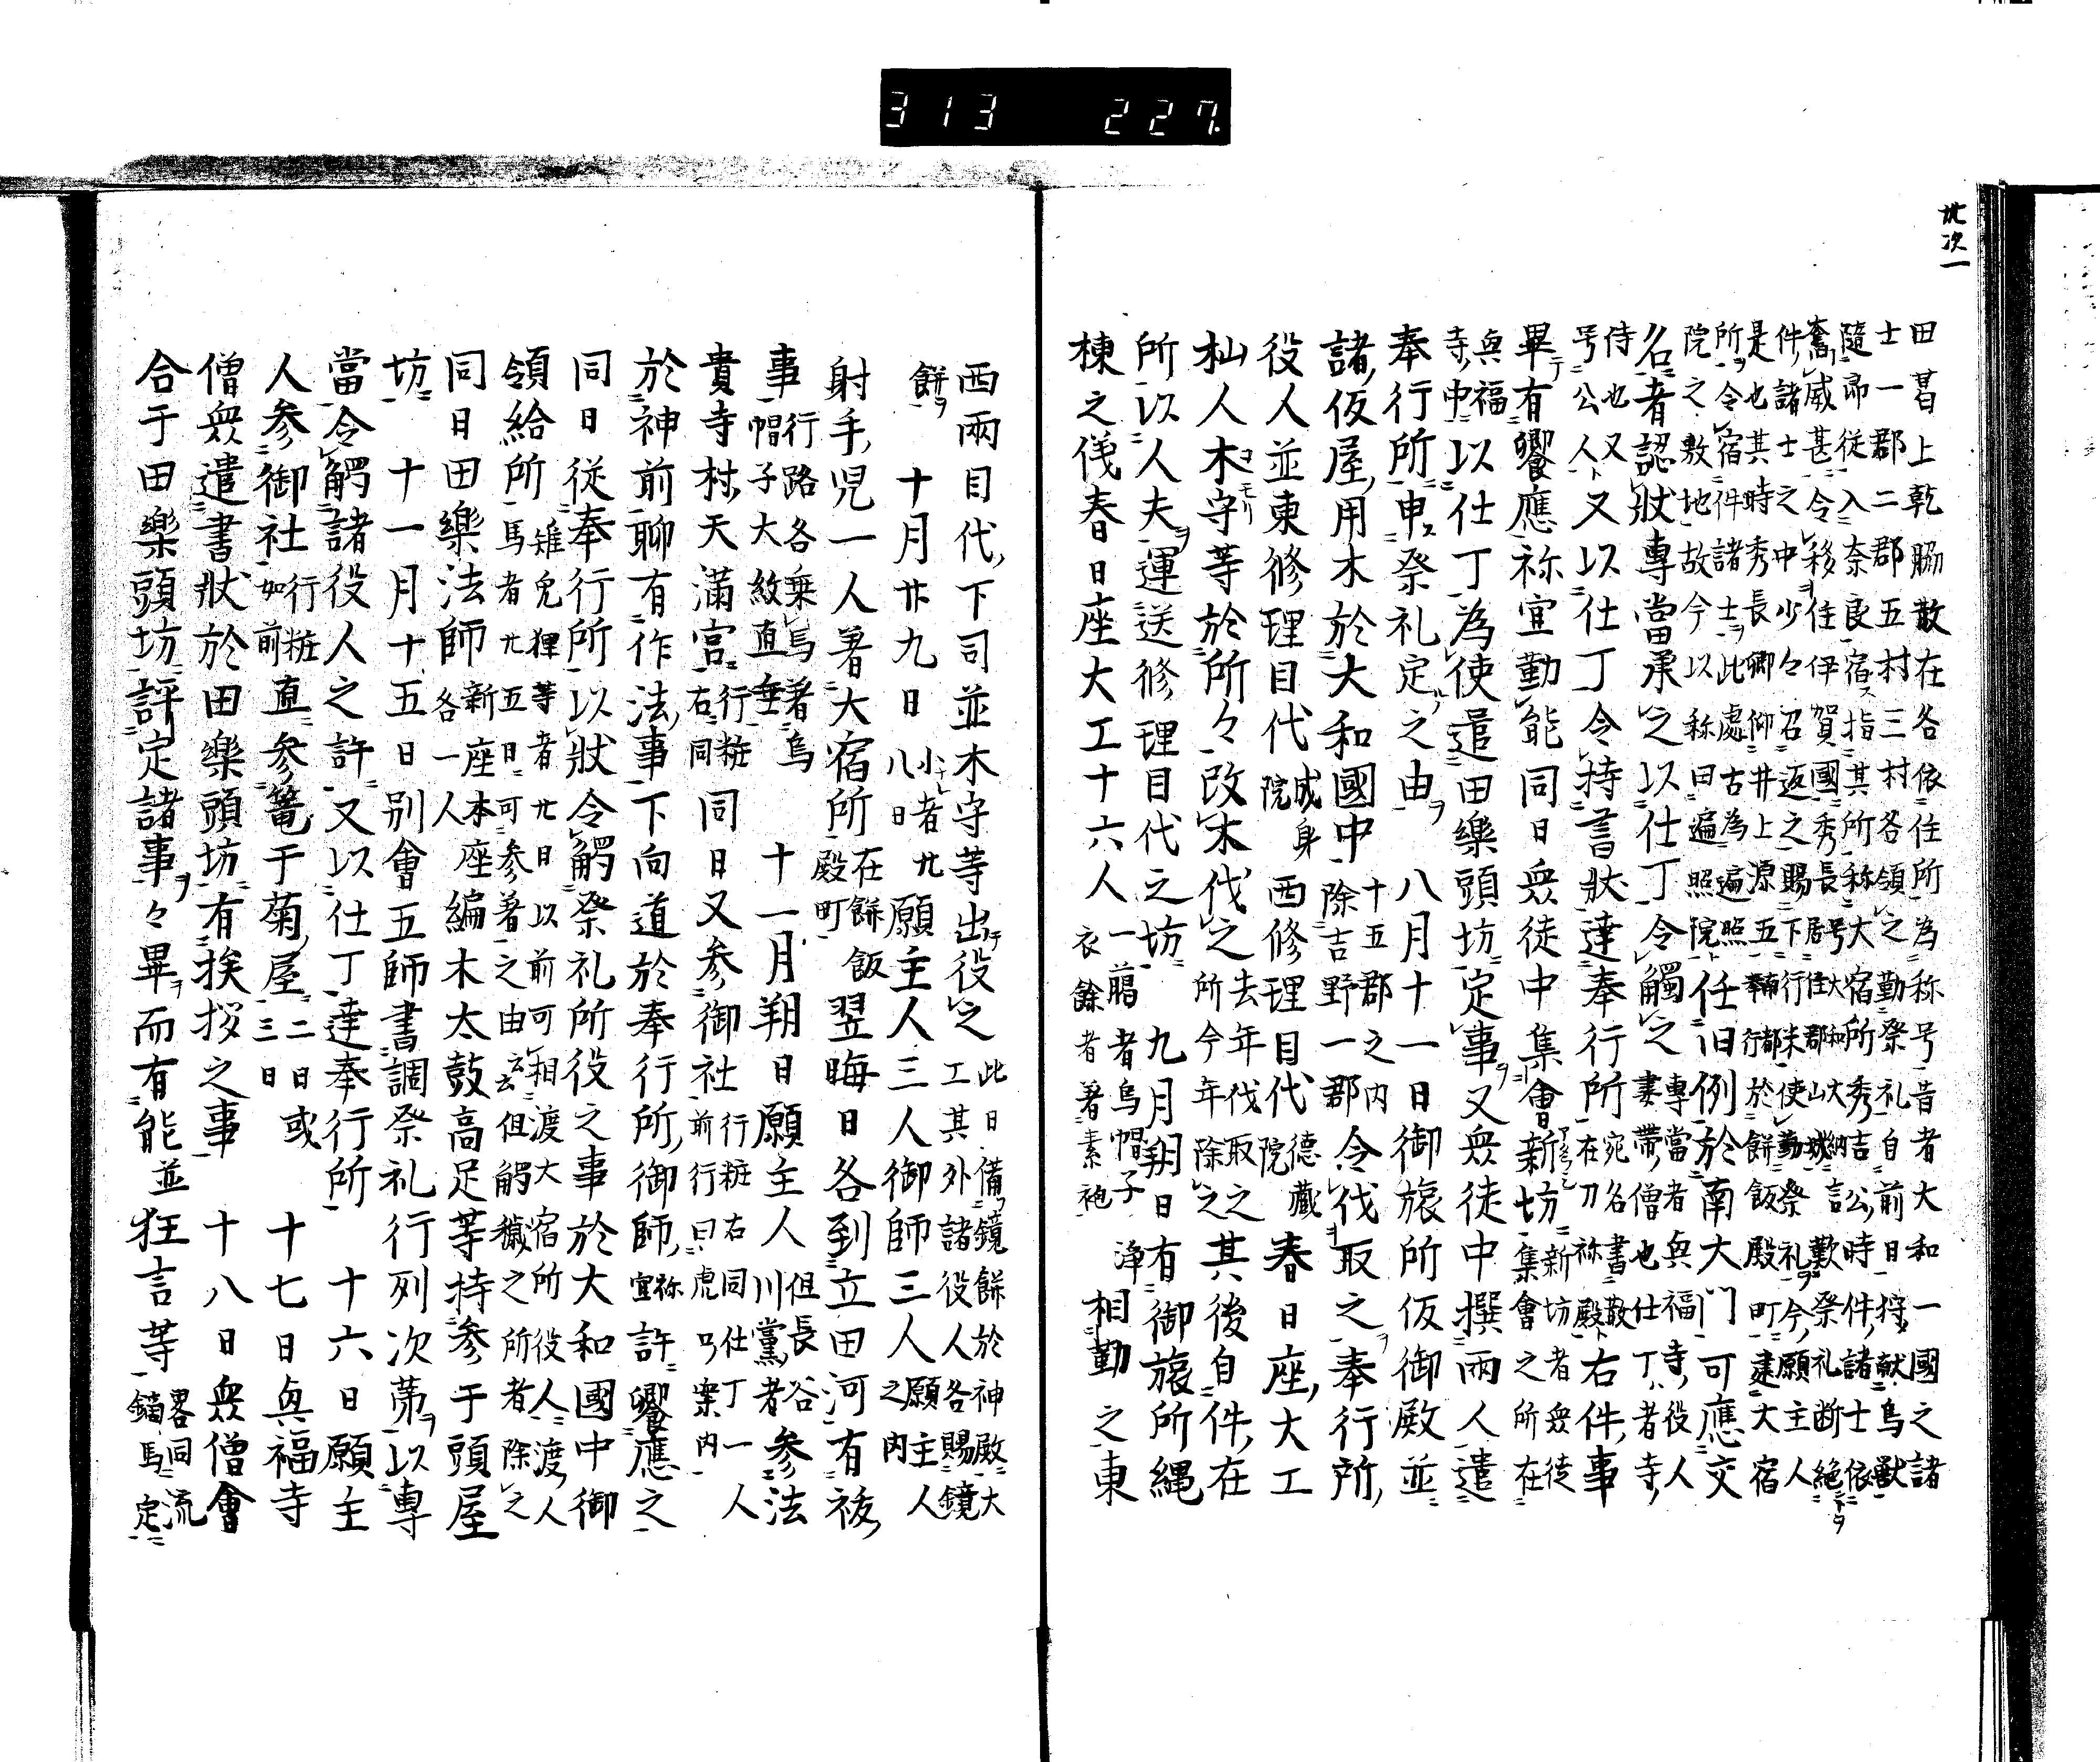 313 227.
此次一
田葛上乾脇散在各依住所為称号昔者大和一国之諸
士一郡二郡五村三村各領之勤祭礼自前日狩献鳥獣
隨而従入奈良宿指其所称大宿所秀吉公時件諸士依
奮威甚令移住伊賀國秀長号大和大納言歎祭礼断絶
件諸士之中少々召返之賜下居住郡山城勤祭礼今願主人
是也其時秀長卿仰井上源五行末使於餅飯殿町建大宿
所令宿件諸士此處古為遍照
院之敷地故今以称曰遍照院任旧例於南大門可應交
名者認状專當承之以仕丁令觸之專當者與福寺役人
妻帯僧也仕丁者寺
侍也又
号公人又以仕丁令持書状達奉行所宛名書散
在刀祢殿右件事
畢有饗應祢宜勤能同日衆徒中集會新坊新坊者衆徒
集會之所在
與福
寺中以仕丁為使遣田樂頭坊定事又衆徒中撰兩人遣
奉行所申祭礼定之由 八月十一日御旅所仮御殿並
諸仮屋用木於大和國中十五郡之内
除吉野一郡令伐取之奉行所
役人並東修理目代成身
院西修理目代徳蔵
院春日座大工
杣人木守等於所々改木伐之去年伐取之
所今年除之其後自件在
所以人夫運送修理目代之坊 九月朔日有御旅所縄
棟之儀春日座大工十六人一﨟者烏帽子浄
衣餘者著素袍相勤之東
西兩目代下司並木守等出行役之此日備鏡餅於神殿大
工其外諸役人各賜鏡
餅 十月廿九日小者廿
八日願主人三人御師三人願主人
之内
射手児一人著大宿所在餅飯
殿町翌晦日各到立田河有祓
事行路各乗馬著烏
帽子大紋直垂 十一月朔日願主人但長谷
川黨者参法
貴寺村天滿宮行粧
右同同日又参御社行粧右同仕丁一人
前行曰虎口案内
於神前聊有作法事下向道於奉行所御師祢
宜許饗應之
同日従奉行所以状令觸祭礼所役之事於大和國中御
領給所雉兎狸等者廿日以前可相渡大宿所役人渡人
馬者廿五日可参著之由云云但觸穢之所者除之
同日田樂法師新座本座
各一人編木太鼓高足等持参于頭屋
坊 十一月十五日別會五師書調祭礼行列次第以專
當令觸諸役人之許又以仕丁達奉行所 十六日願主
人参御社行粧
如前直参篭于菊屋二日或
三日 十七日與福寺
僧衆遣書状於田樂頭坊有挨拶之事 十八日衆僧會
合于田樂頭坊評定諸事々畢而有能並狂言等畧同流
鏑馬定